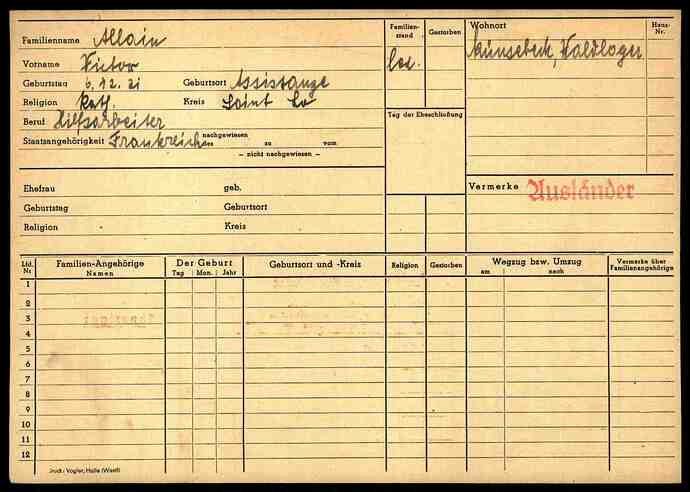 Familienname Allain
Vorname Victor
Geburtstag 6.12.21 Geburtsort Assistange
Religion kath. Kreis Saint Lo
Beruf Hilfsarbeiter
Staatsangehörigkeit Frankreich nachgewiesen
zu vom
– nicht nachgewiesen –
Familien-
stand
led.
Gestorben
Tag der Eheschließung
Wohnort
Haus-
Nr.
Künsebeck, Waldlager
Vermerke Ausländer
Ehefrau geb.
Geburtstag Geburtsort
Religion Kreis
Lfd. Nr. Familien-Angehörige Namen Der Geburt Tag Mon. Jahr Geburtsort und -Kreis Religion Gestorben Wegzug bzw. Umzug am nach Vermerke über Familienangehörige
1
2
3
4
5
6
7
8
9
10
11
12
Druck: Vogler, Halle (Westf)